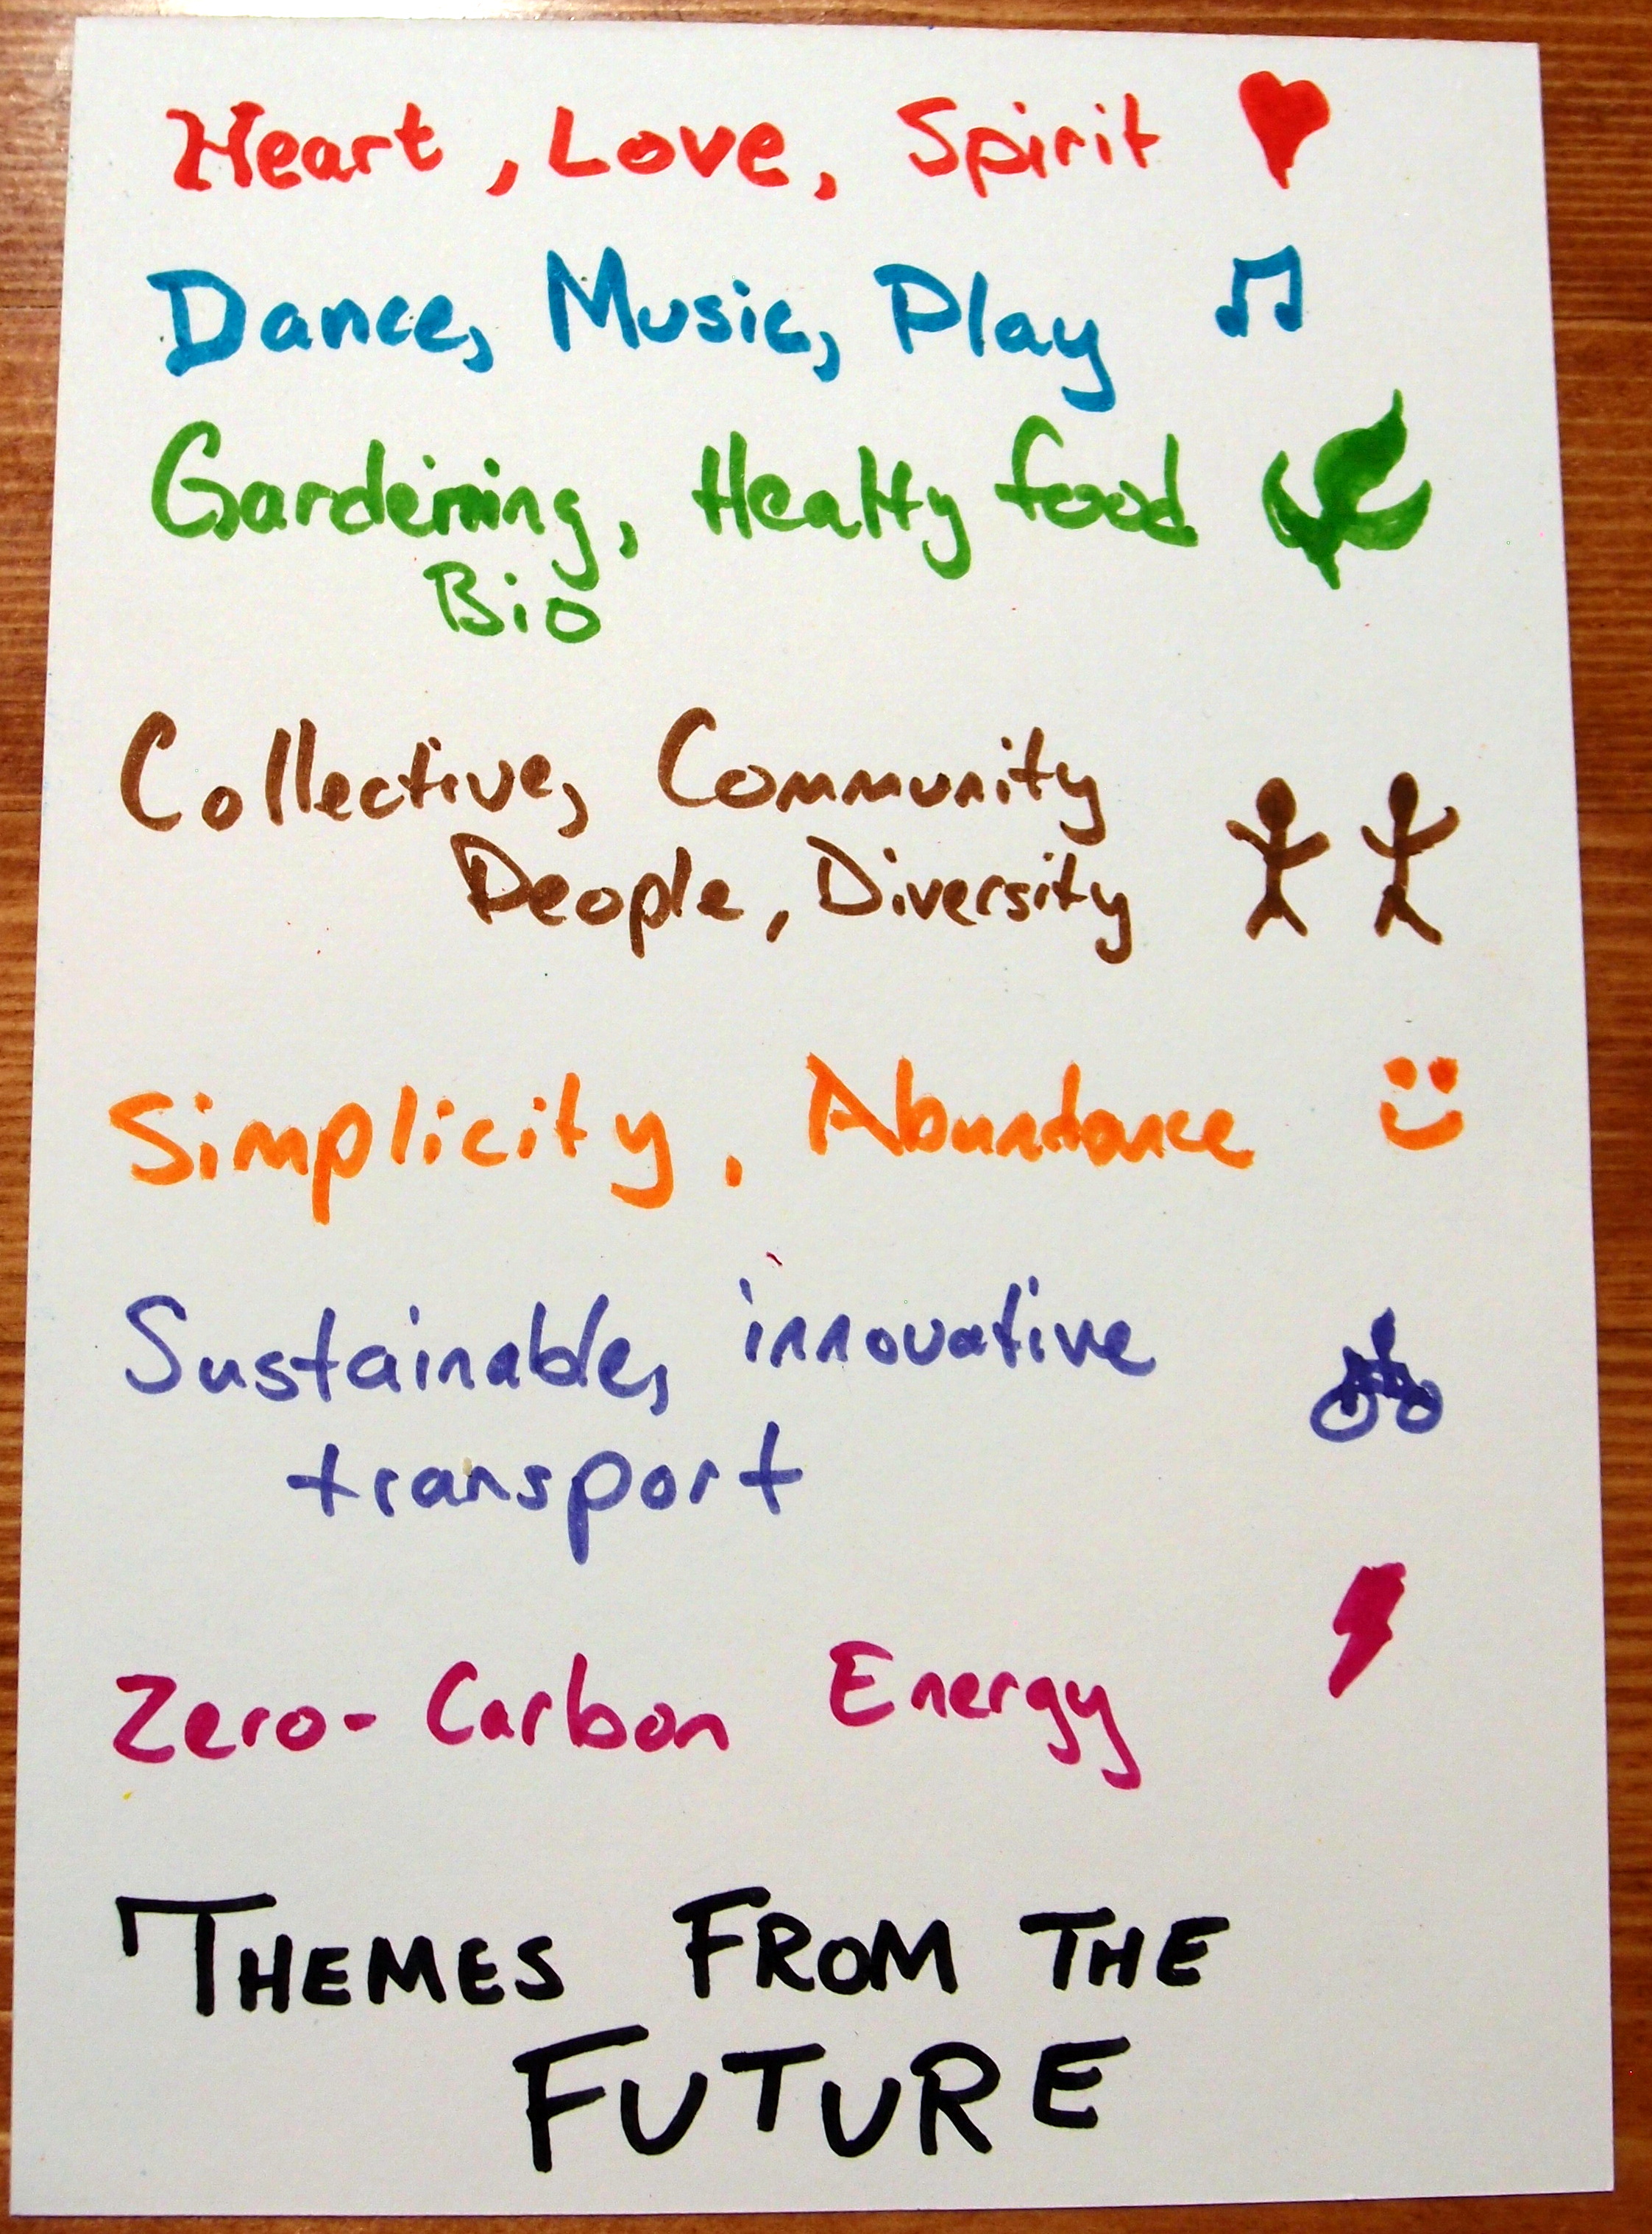 Heart, Love, Spirit
Dance, Music, Play
Gardening, Healty food
Bio
Collective, Community
People, Diversity
Simplicity, Abundance
Sustainable, innovative
transport
Zero-Carbon Energy
THEMES FROM THE
FUTURE